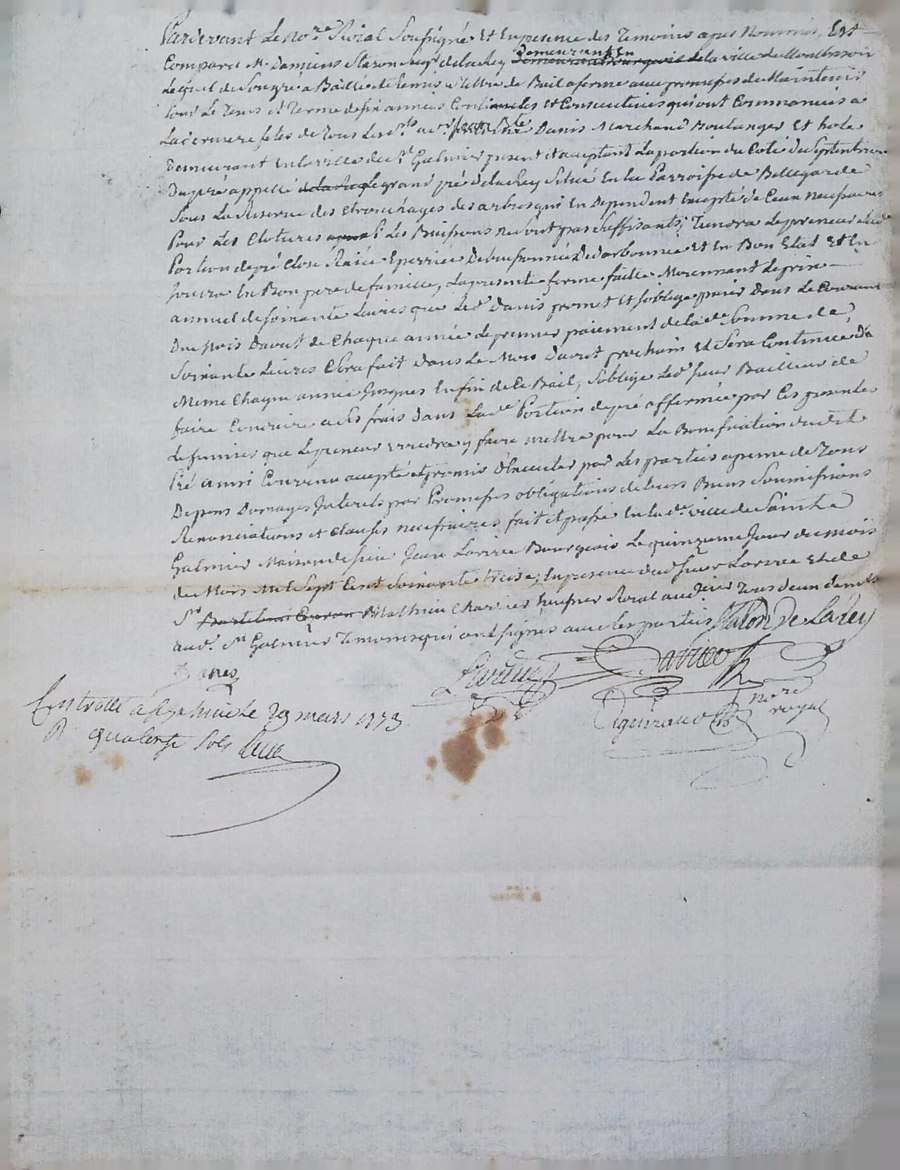 Pardevant Le no.re Roial Soussigné Et En presence des Temoins apres Nommés, Est
Comparu M.r Damiens Staron delarey demeurant En de la ville de Montbrison
Lequel de Son gré a Baillé et Remis a Titre de Bail a ferme avec promesses de Maintenir
pour Le Tems et Terme de six années Continuelles Et Consecutives qui ont Commancés a
La feste de Tous Les S.ts a jean B.te Danis Marchand Boulanger Et hote
Demeurant En la ville de S.t Galmier present et acceptant La portion du Coté du Septentrion
Du pré appellé Le grand pré delarey Situé En La Parroisse de Bellegarde
Sous La Reserve des Etronchages des arbres qui En dependent Excepté de Ceux necessaires
Pour Les Clotures Si Les Buissons ne sont pas Suffisants; Tiendra Le preneur
Portion de pré Close Et En Bon Etat Et En
Jouira En Bon pere de famille, La presente ferme faitte Moiennant Le prix
annuel de Soixante Livres que Led. Danis promet Et S'oblige paier Dans Le Courant
Du Mois D'aout de Chaque année Le premier paiement de la d.e Somme de
Soixante Livres Sera fait Dans Le Mois D'aout prochain Et Sera Continué D'a
Meme Chaque année Jusques En fin de Ce Bail, S'oblige Led. Sieur Bailleur de
faire Conduire a Ses frais Dans La d.e Portion de pré affermée par Ces presentes
Le fumier que Le preneur voudra y faire mettre pour La Bonification dudit
Pré ainsi Convenu accepté et promis D'Executer par Les parties a peine de Tous
Depens Domages Interets par Promesses obligations de leurs Biens Soumissions
Renonciations et Clauses necessaires fait et passé En la d.e ville de Saint
Galmier Maison de Sieur Jean Bourgeois Le quinzieme Jour du mois
de Mars Mil Sept Cent Soixante treize, En presence dud. Sieur Et de
S.r Mathieu Charvier huissier Roial au
aud. S.t Galmier Temoins qui ont signés avec les parties Staron De Larey
Danis
no.re royal
Controllé a S.t galmier Le 29 mars 1773
R. quatorze Sols